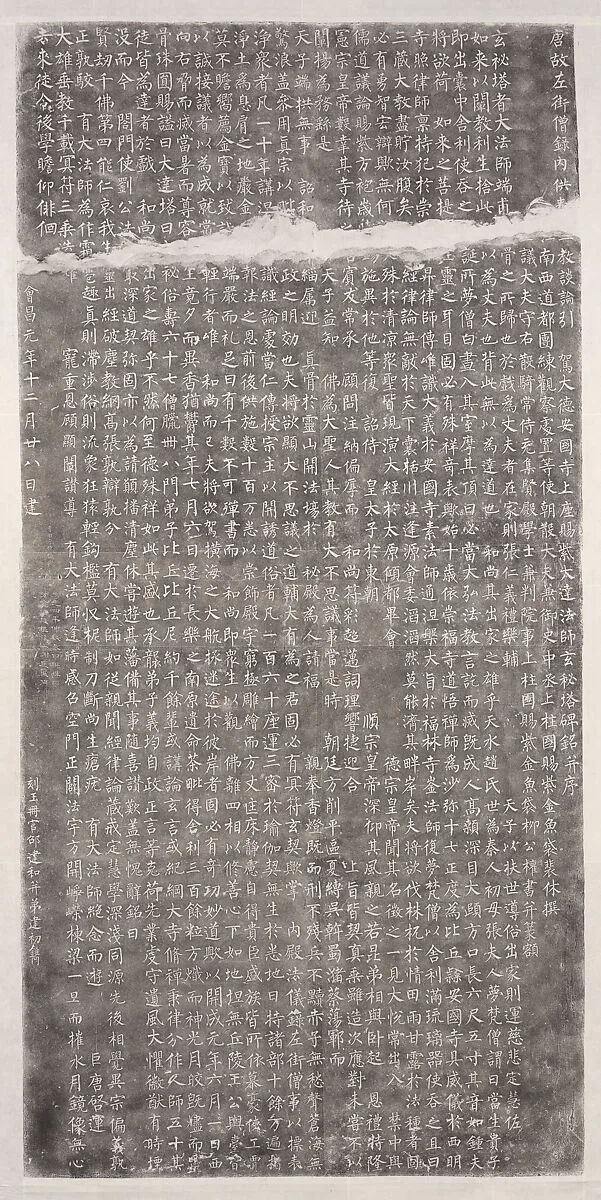 唐故左街僧錄內供教談論引 駕大德安國寺上座賜紫大達法師玄秘塔碑銘并序
南西道都團練觀察處置等使朝散大夫兼御史中丞上柱國賜紫金魚袋裴休撰
議大夫守右散騎常侍充集賢殿學士兼判院事上柱國賜紫金魚袋柳公權書并篆額
玄秘塔者大法師端甫骨之所歸也於戲為丈夫者在家則張仁義禮樂輔 天子以扶世導俗出家則運慈悲定慧佐
如來以闡教利生捨此以為丈夫也背此無以為達道也 和尚其出家之雄乎天水趙氏世為秦人初母張夫人夢梵僧謂曰當生貴子
即出囊中舍利使吞之誕所夢僧白晝入其室摩其頂曰必當大弘法教言訖而滅既成人高顙深目大頤方口長六尺五寸其音如鍾夫
將欲荷 如來之菩提生靈之耳目固必有殊祥奇表歟始十歲依崇福寺道悟禪師為沙彌十七正度為比丘隸安國寺具威儀於西明
寺照律師稟持犯於崇昇律師傳唯識大義於安國寺素法師通涅槃大旨於福林寺崟法師復夢梵僧以舍利滿琉璃器使吞之且曰
三藏大教盡貯汝腹矣經律論無敵於天下囊括川注逢源會委滔滔然莫能濟其畔岸矣夫將欲伐株杌於情田雨甘露於法種者固
必有勇智宏辯歟無何殊於清涼眾聖皆現演大經於太原傾都畢會 德宗皇帝聞其名徵之一見大悅常出入 禁中與
儒道議論賜紫方袍歲施異於他等復 詔侍 皇太子於東朝 順宗皇帝深仰其風親之若昆弟相與臥起 恩禮特隆
憲宗皇帝數幸其寺待之若賓友常承 顧問注納偏厚而 和尚符彩超邁詞理響捷迎合 上旨皆契真乘雖造次應對未嘗不以
闡揚為務繇是 天子益知 佛為大聖人其教有大不思議事當是時 朝廷方削平區夏縛吳斡蜀瀦蔡蕩鄆而
天子端拱無事 詔和緇屬迎 真骨於靈山開法場於 秘殿為人請福 親奉香燈既而刑不殘兵不黷赤子無愁聲蒼海無
驚浪蓋參用真宗以毗政之明效也夫將欲顯大不思議之道輔大有為之君固必有冥符玄契歟掌 內殿法儀錄左街僧事以標表
淨眾者凡一十年講涅識經論處當仁傳授宗主以開誘道俗者凡一百六十座運三密於瑜伽契無生於悉地日持諸部十餘萬遍指
淨土為息肩之地嚴金報法之恩前後供施數十百萬悉以崇飾殿宇窮極雕繪而方丈匡床靜慮自得貴臣盛族皆所依慕豪俠工賈
莫不瞻嚮薦金寶以致誠端嚴而禮足日有千數不可殫書而 和尚即眾生以觀 佛離四相以修善心下如地坦無丘陵王公輿臺皆
以誠接議者以為成就常輕行者唯 和尚而已夫將欲駕橫海之大航拯迷途於彼岸者固必有奇功妙道歟以開成元年六月一日西
向右脅而滅當暑而尊容生竟夕而異香猶鬱其年七月六日遷於長樂之南原遺命荼毗得舍利三百餘粒方熾而神光月皎既燼而靈
骨珠圓賜謚曰大達塔曰秘俗壽六十七僧臘卌八門弟子比丘比丘尼約千餘輩或講論玄言或紀綱大寺修禪秉律分作人師五十其
徒皆為達者於戲 和尚出家之雄乎不然何至德殊祥如此其盛也承襲弟子義均自政正言等克荷先業虔守遺風大懼徽猷有時堙
沒而今 閤門使劉公法最深道契彌固亦以為請願播清塵休嘗遊其藩備其事隨喜讚歎蓋無愧辭銘曰
賢劫千佛第四能仁哀我生靈出經破塵教網高張孰辯孰分 有大法師如從親聞經律論藏戒定慧學深淺同源先後相覺異宗偏義孰
正孰駁 有大法師為作霜雹趣真則滯涉俗則流象狂猿輕鉤檻莫收柅制刀斷尚生瘡疣 有大法師絕念而遊 巨唐啟運
大雄垂教千載冥符三乘迭耀 寵重恩顧顯闡讚導 有大法師逢時感召空門正闢法宇方開崢嶸棟梁一旦而摧水月鏡像無心
去來徒令後學瞻仰徘徊 會昌元年十二月廿八日建 刻玉冊官邵建和并弟建初鐫